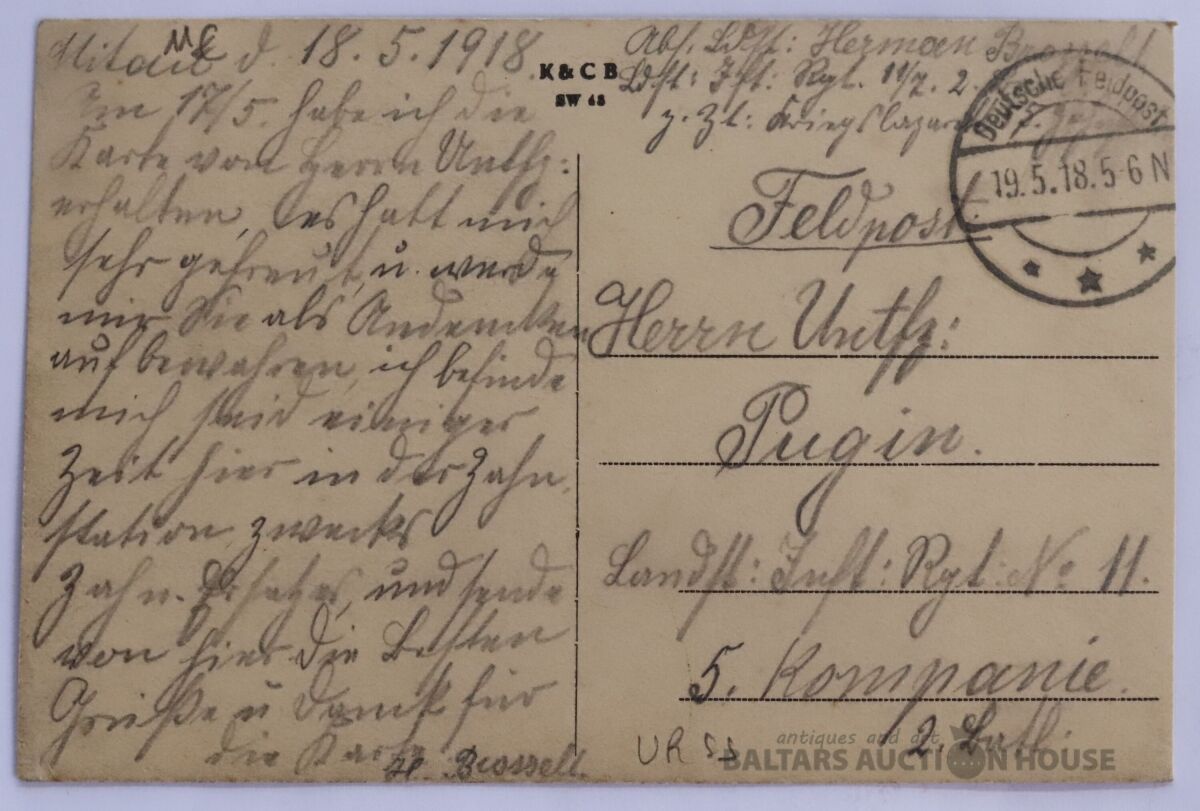 Mitau d. 18.5.1918
Am 17/5. habe ich die
Karte von Herrn Untfz:
erhalten, es hatt mich
sehr gefreut, u. werde
mir Sie als Andencken
aufbewahren, ich befinde
mich seid einiger
Zeit hier in der Zahn
station zwecks
Zahn Ersatzes, und sende
von hier die Besten
Grüße u Danck für
die Karte
H. Brossell.
K & C B
SW 68
Abs. Ldst: Herman
Ldst: Inft: Rgt. 11/7. 2.
z. Zt: Kriegslazar
Deutsche Feldpost
19.5.18.5-6 N
Feldpost.
Herrn Untfz:
Pugin.
Landst: Inft: Rgt: No 11.
5. Kompanie.
2. Batl.
UR
antiques and art
BALTARS AUCTION HOUSE